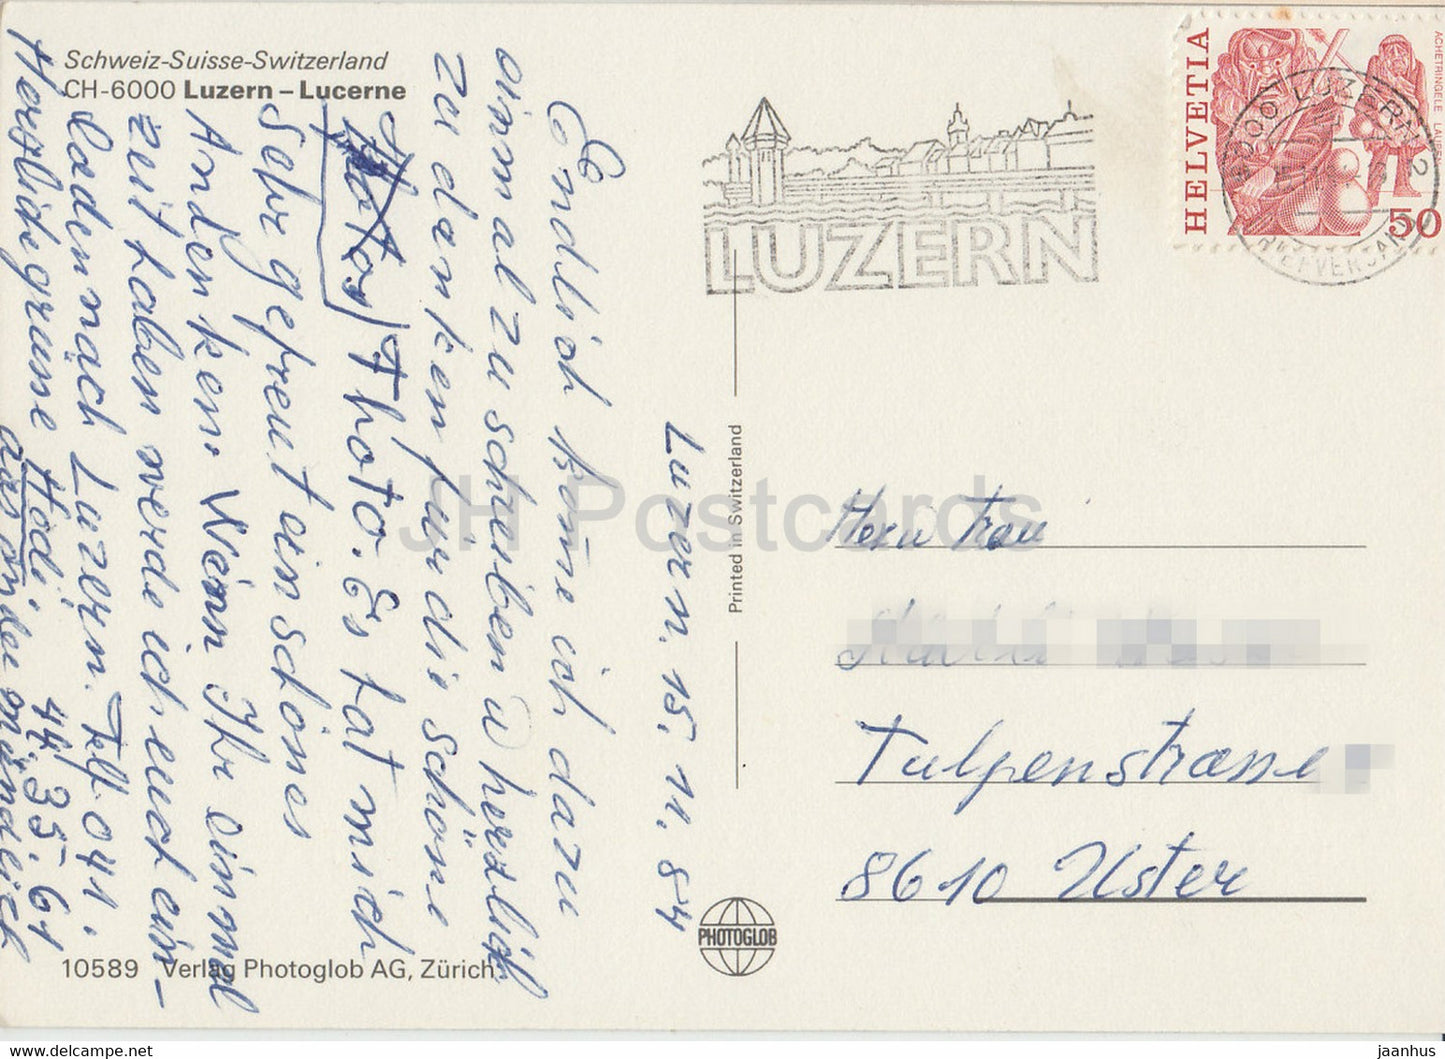 Schweiz-Suisse-Switzerland
CH-6000 Luzern – Lucerne
Luzern. 15. 11. 84
Endlich kome ich dazu
einmal zu schreiben u herzlich
zu danken für die schöne
Photos Thoto. Es hat mich
Sehr gefreut ein schönes
Andenken. Wenn Ihr einmal
zeit haben werde ich euch ein-
laden nach Luzern. Tlf 041.
44. 35-61
Herzliche grüsse Hedi
das in den mündlich
10589 Verlag Photoglob AG, Zürich
Printed in Switzerland
PHOTOGLOB
LUZERN
HELVETIA
50
ACHETRINGELE LAUPEN
6000 LUZERN 2
BRIEFVERSAND
Herr u Frau
Tulpenstrasse
8610 Uster
JH Postcards
jaanhus - www.delcampe.net